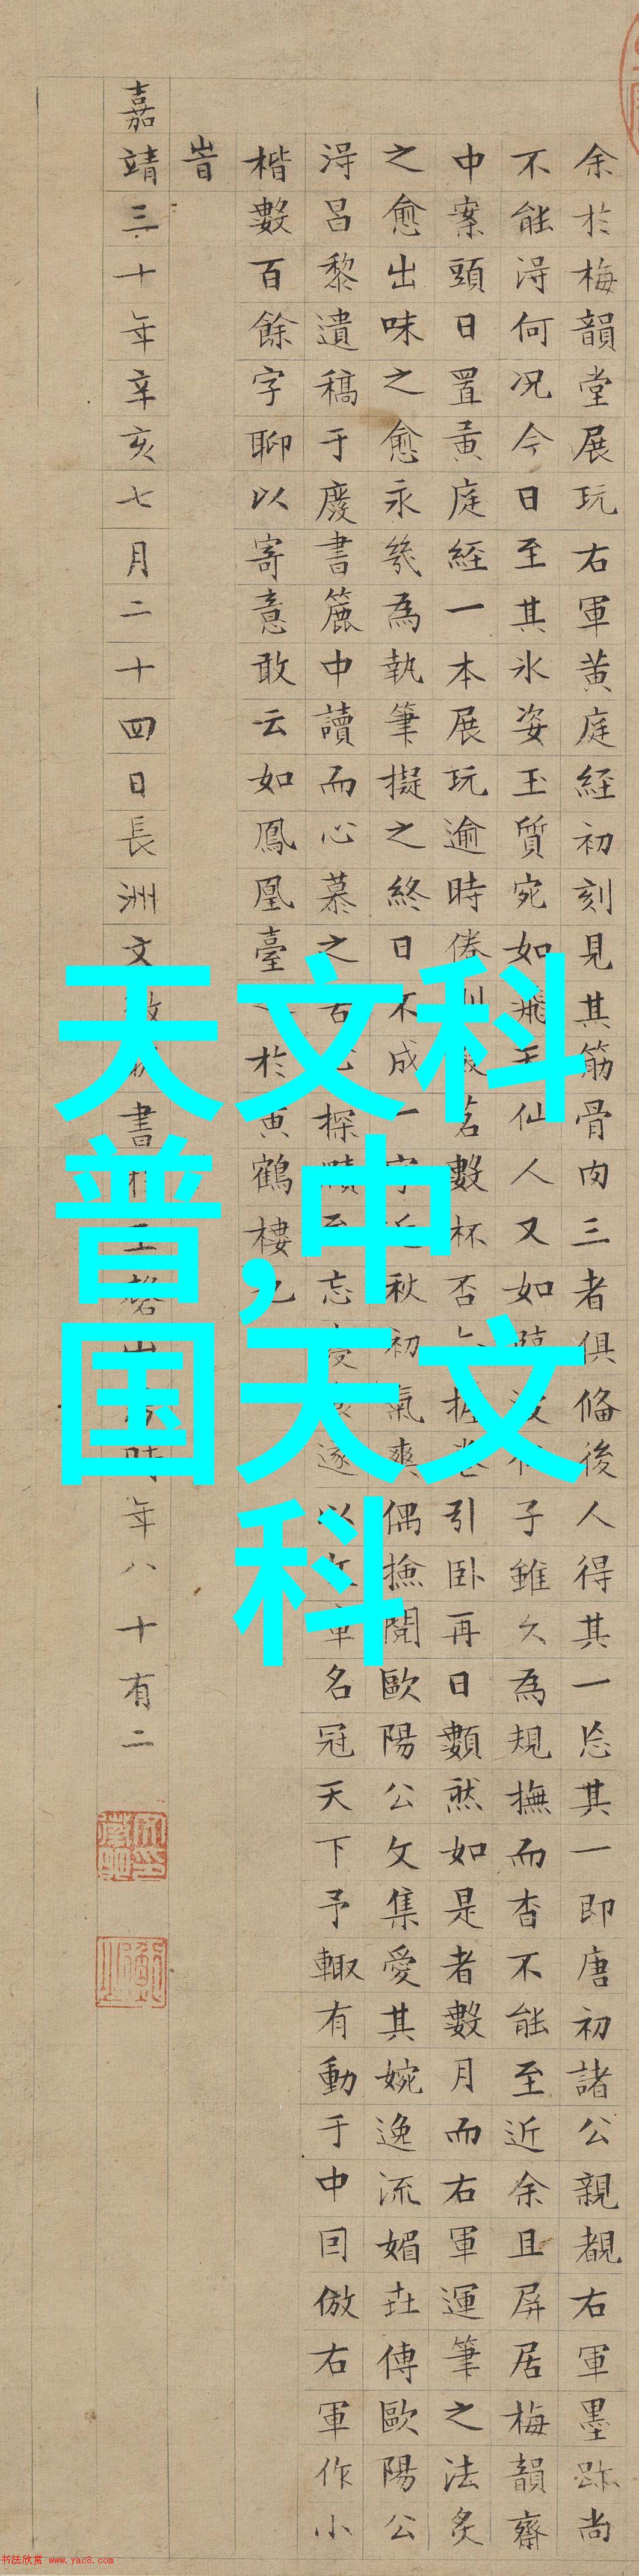 余於梅韻堂展玩右軍黄庭経初刻見其筋骨肉三者俱俻後人得其一忘其一即唐初諸公親覩右軍墨跡尚
不能淂何况今日至其氷姿玉質宛如飛天仙人又如波子雖久為規撫而杳不能至近余且屏居梅韻齋
中案頭日置黄庭經一本展玩逾時倦茗數杯否握卷引卧再日數然如是者數月而右軍運筆之法炙
之愈出味之愈永幾為執筆擬之終日不成一字近秋初氣爽偶撿閱歐陽公文集愛其婉逸流媚壵傳歐陽公
淂呂黎遺稿于廢書簏中讀而心慕之探忘遂以章名冠天下予輙有動于中囙倣右軍作小
楷數百餘字聊以寄意敢云如鳳凰臺於黄鶴樓也
旹
嘉靖三十年辛亥七月二十四日長洲文書玉磬山時年八十有二
天文科
普,中
国天文
科
书法欣赏 www.yac8.com